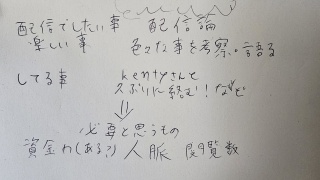 配信でしたい事 配信論
楽しい事 色々な事を考察。語る
してる事 kentyさんと
久ぶりに絡む!!など
必要と思うもの
資金力(ある?) 人脈 閲覧数